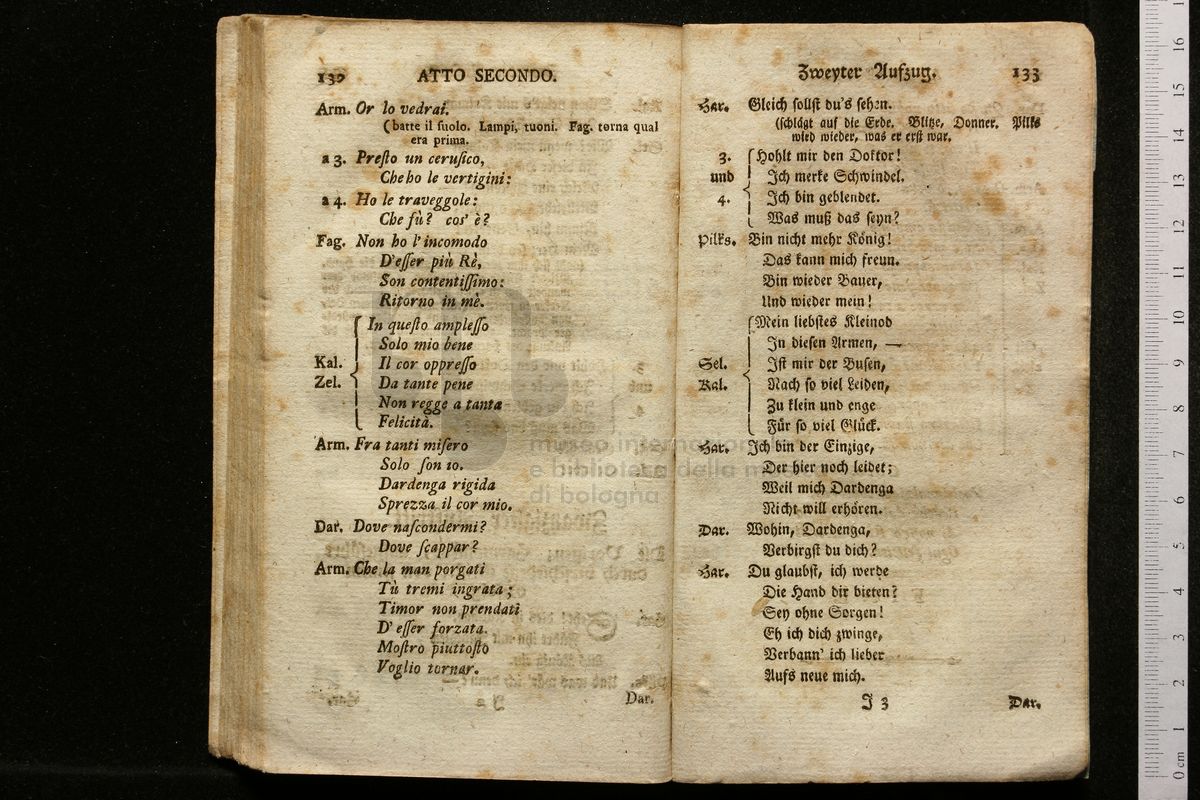 132 ATTO SECONDO.
Arm. Or lo vedrai.
(batte il ſuolo. Lampi, tuoni. Fag. torna qual
era prima.
a 3. Preſto un ceruſico,
Che ho le vertigini:
a 4. Ho le traveggole:
Che fù? cos' è?
Fag. Non ho l' incomodo
D'eſſer più Rè,
Son contentiſſimo:
Ritorno in mè.
In queſto ampleſſo
Solo mio bene
Kal. Il cor oppreſſo
Zel. Da tante pene
Non regge a tanta
Felicità.
Arm. Fra tanti miſero
Solo ſon io.
Dardenga rigida
Sprezza il cor mio.
Dar. Dove naſcondermi?
Dove ſcappar?
Arm. Che la man porgati
Tù tremi ingrata;
Timor non prendati
D' eſſer forzata.
Moſtro piuttoſto
Voglio tornar.
Dar.
Zweyter Aufzug. 133
Har. Gleich ſollſt du's ſehen.
(ſchlägt auf die Erde. Blitze, Donner. Pilks
wied wieder, was er erſt war.
3. Hohlt mir den Doktor!
und Ich merke Schwindel.
4. Ich bin geblendet.
Was muß das ſeyn?
Pilks. Bin nicht mehr König!
Das kann mich freun.
Bin wieder Bauer,
Und wieder mein!
Mein liebſtes Kleinod
In dieſen Armen, —
Sel. Iſt mir der Buſen,
Kal. Nach ſo viel Leiden,
Zu klein und enge
Für ſo viel Glück.
Har. Ich bin der Einzige,
Der hier noch leidet;
Weil mich Dardenga
Nicht will erhören.
Dar. Wohin, Dardenga,
Verbirgſt du dich?
Har. Du glaubſt, ich werde
Die Hand dir bieten?
Sey ohne Sorgen!
Eh ich dich zwinge,
Verbann' ich lieber
Aufs neue mich.
J 3 Dar.
museo internazion
e biblioteca della m
di bologna
0 cm 1 2 3 4 5 6 7 8 9 10 11 12 13 14 15 16